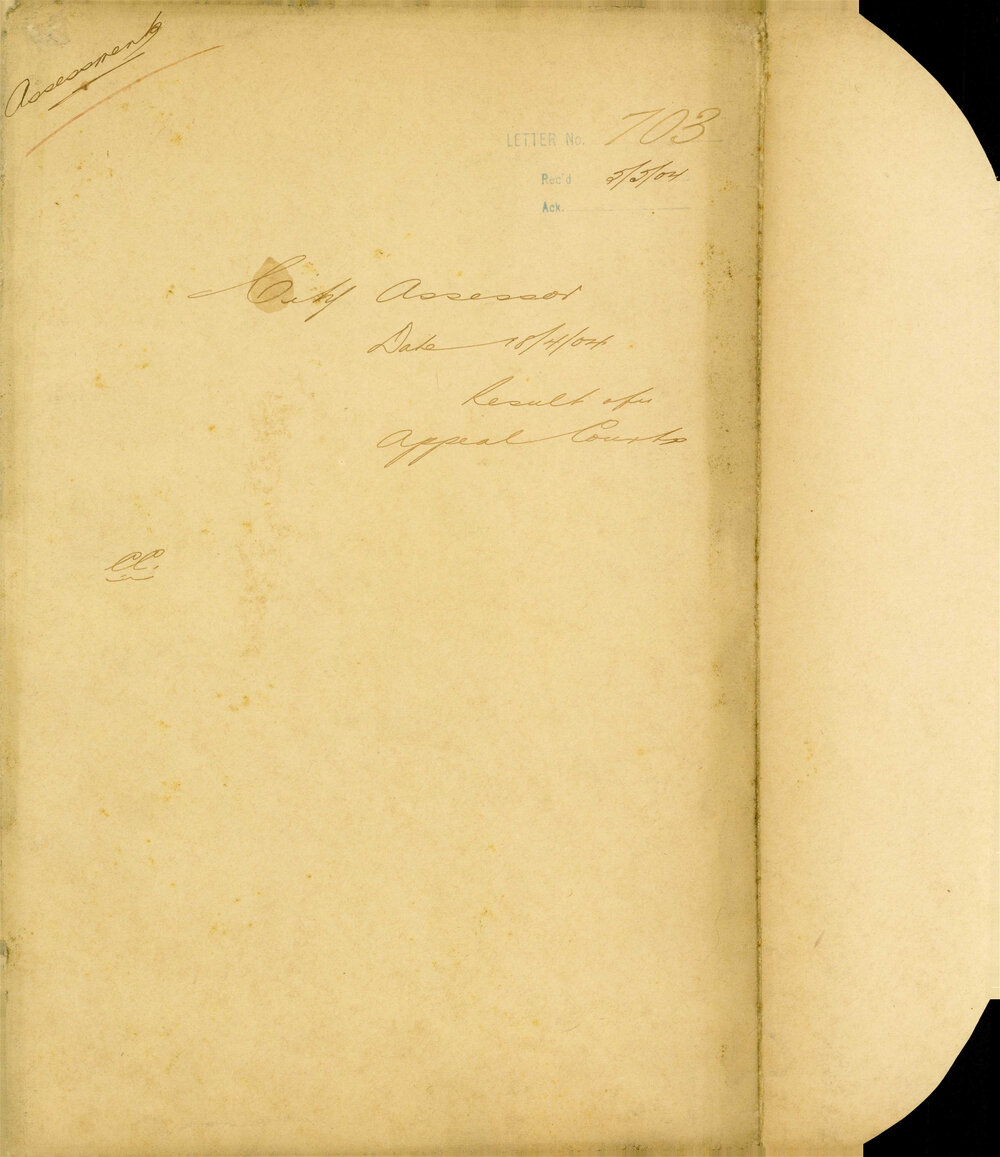 Assessments
LETTER No. 703
Rec'd 5/5/04
Ack.
City Assessor
Date 18/4/04
Result of
Appeal Courts
CC.